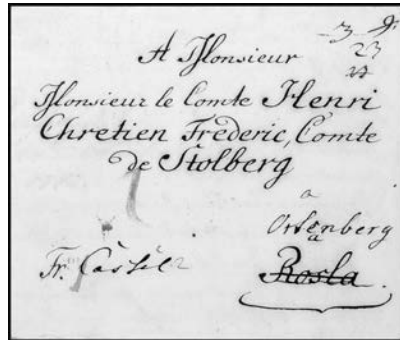 A Monsieur
Monsieur le Comte Henri
Chretien Frederic, Comte
de Stolberg
a
Ortenberg
a
Fr. Castel
Rosla.
23